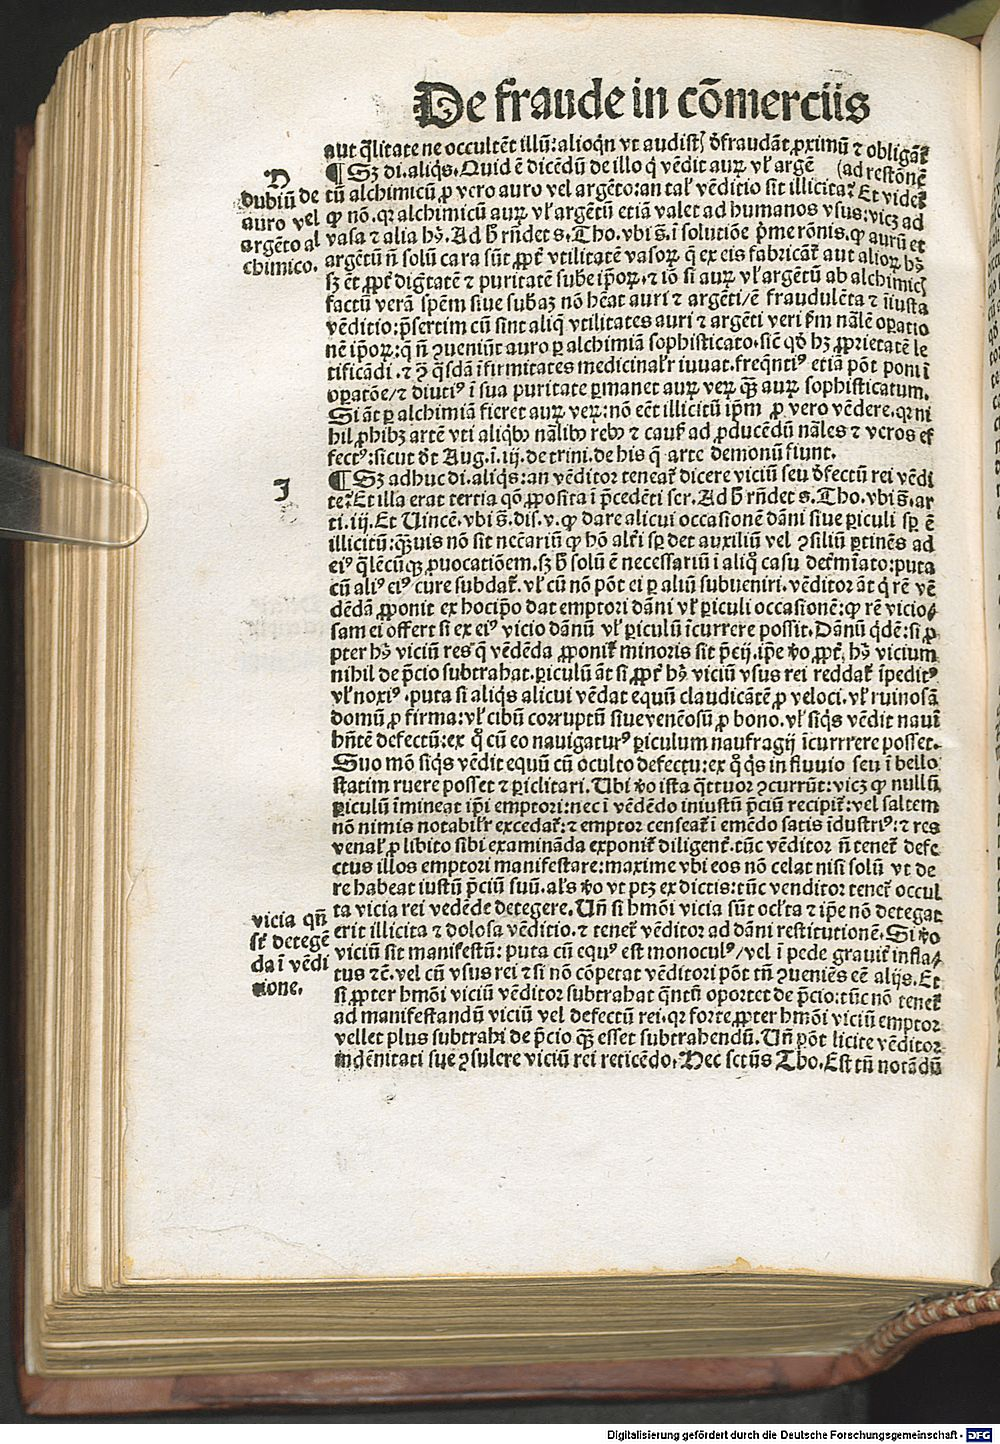 De fraude in cõmerciis
aut q̃litate ne occultẽt illũ: alioqñ vt audistꝭ d̃fraudãt ꝓximũ ⁊ obligãt̃
¶ Sꝫ di. aliq̃s. Quid ẽ dicẽdũ de illo q̇ vẽdit auꝝ vl̃ argẽ (ad restõnẽ
tũ alchimicũ ꝓ vero auro vel argẽto: an tal̃ vẽditio sit illicita? Et videt̃
ꝙ nõ. qꝛ alchimicũ auꝝ vl̃ argẽtũ etiã valet ad humanos vsus: vicꝫ ad
vasa ⁊ alia hꝰ. Ad h̃ rñdet s. Tho. vbi s̃. ĩ solutiõe p̃me rõnis. ꝙ aurũ et
argẽtũ ñ solũ cara sũt ꝓpt̃ vtilitatẽ vasoꝝ q̃ ex eis fabricãt̃ aut alioꝝ hꝰ
sꝫ ẽt ꝓpt̃ dignitatẽ ⁊ puritatẽ sube ip̃oꝝ. ⁊ iõ si auꝝ vl̃ argẽtũ ab alchimicꝭ
factũ verã sp̃em siue subaꝫ nõ hẽat auri ⁊ argẽti/ẽ fraudulẽta ⁊ iĩusta
vẽditio: p̃sertim cũ sint aliq̃ vtilitates auri ⁊ argẽti veri ẜm nãlẽ oꝑatio
nẽ ip̃oꝝ: q̃ ñ ꝯueniũt auro ꝑ alchimiã sophisticato. sic̃ qd̃ hꝫ ꝓprietatẽ le
tificãdi. ⁊ ꝯ̃ q̃sdã ĩfirmitates medicinalr̃ iuuat. freq̃ntiꝰ etiã põt poni ĩ
oꝑatõe/⁊ diutiꝰ ĩ sua puritate ꝑmanet auꝝ veꝝ q̃ꝫ auꝝ sophisticatum.
Si ãt ꝑ alchimiã fieret auꝝ veꝝ: nõ eẽt illicitũ ip̃m ꝓ vero vẽdere. qꝛ ni
hil ꝓhibꝫ artẽ vti aliq̇bꝰ nãlibꝰ rebꝰ ⁊ caus̃ ad ꝓducẽdũ nãles ⁊ veros ef
fectꝰ: sicut d̃t Aug. ĩ. iij. de trini. de his q̃ arte demonũ fiunt.
¶ Sꝫ adhuc di. aliq̃s: an vẽditor teneat̃ dicere viciũ seu d̃fectũ rei vẽdi
te? Et illa erat tertia qõ ꝓposita ĩ p̃cedẽti ser. Ad h̃ rñdet s. Tho. vbi s̃. ar
ti. iij. Et Uincẽ. vbi s̃. dis. v. ꝙ dare alicui occasionẽ dãni siue ꝑiculi sꝑ ẽ
illicitũ: q̃ꝫuis nõ sit nec̃ariũ ꝙ hõ alt̃i sꝑ det auxiliũ vel ꝯsiliũ ꝑtinẽs ad
eiꝰ q̃lẽcũqꝫ ꝓuocatiõem. sꝫ h̃ solũ ẽ necessariũ ĩ aliq̇ casu det̃mĩato: puta
cũ aliꝰ eiꝰ cure subdat̃. vl̃ cũ nõ põt ei ꝑ aliũ subueniri. vẽditor ãt q̇ rẽ vẽ
dẽdã ꝓponit ex hocip̃o dat emptori dãni vl̃ ꝑiculi occasionẽ: ꝙ rẽ vicio⸗
sam ei offert si ex eiꝰ vicio dãnũ vl̃ ꝑiculũ ĩcurrere possit. Dãnũ q̃dẽ: si ꝓ
pter hꝰ viciũ res q̃ vẽdẽda ꝓponit̃ minoris sit p̃cij. ip̃e ṽo ꝓpt̃ hꝰ vicium
nihil de p̃cio subtrahat. ꝑiculũ ãt si ꝓpt̃ hꝰ viciũ vsus rei reddat̃ ĩpeditꝰ
vl̃ noxiꝰ. puta si aliq̃s alicui vẽdat equũ claudicãtẽ ꝓ veloci. vl̃ ruinosã
domũ ꝓ firma: vl̃ cibũ corruptũ siue venẽosũ ꝓ bono. vl̃ siq̃s vẽdit nauĩ
hñtẽ defectũ: ex q̇ cũ eo nauigaturꝰ ꝑiculum naufragij ĩcurrrere posset.
Suo mõ siq̃s vẽdit equũ cũ oculto defectu: ex q̇ q̃s in fluuio seu ĩ bello
statim ruere posset ⁊ ꝑiclitari. Ubi ṽo ista q̃ttuor ꝯcurrũt: vicꝫ ꝙ nullũ
ꝑiculũ ĩmineat ip̃i emptori: nec ĩ vẽdẽdo iniustũ p̃ciũ recipit̃: vel saltem
nõ nimis notabilr̃ excedat̃: ⁊ emptor censeat̃ ĩ emẽdo satis ĩdustriꝰ: ⁊ res
venal̃ ꝓ libito sibi examinãda exponit̃ diligent̃. tũc vẽditor ñ tenet̃ defe
ctus illos emptori manifestare: maxime vbi eos nõ celat nisi solũ vt de
re habeat iustũ p̃ciũ suũ. al̃s ṽo vt ptꝫ ex dictis: tũc venditor tenet̃ occul
ta vicia rei vedẽde detegere. Uñ si hmõi vicia sũt ocl̃ta ⁊ ip̃e nõ detegat
erit illicita ⁊ dolosa vẽditio. ⁊ tenet̃ vẽditor ad dãni restitutionẽ. Si ṽo
viciũ sit manifestũ: puta cũ equꝰ est monoculꝰ/vel ĩ pede grauit̃ infla⸗
tus ⁊c̃. vel cũ vsus rei ⁊ si nõ cõpetat vẽditori põt tñ ꝯueniẽs eẽ alijs. Et
si ꝓpter hmõi viciũ vẽditor subtrahat q̃ntũ oportet de p̃cio: tũc nõ tenet̃
ad manifestandũ viciũ vel defectũ rei. qꝛ forte ꝓpter hmõi viciũ emptor
vellet plus subtrahi de p̃cio q̃ꝫ esset subtrahendũ. Uñ põt licite vẽditor
indẽnitati sue ꝯsulere viciũ rei reticẽdo. Hec sctũs Tho. Est tñ notãdũ
D
dubiũ de
auro vel
argẽto al
chimico.
J
vicia qñ
st̃ detegẽ
da ĩ vẽdi
tione.
Digitalisierung gefördert durch die Deutsche Forschungsgemeinschaft - DFG